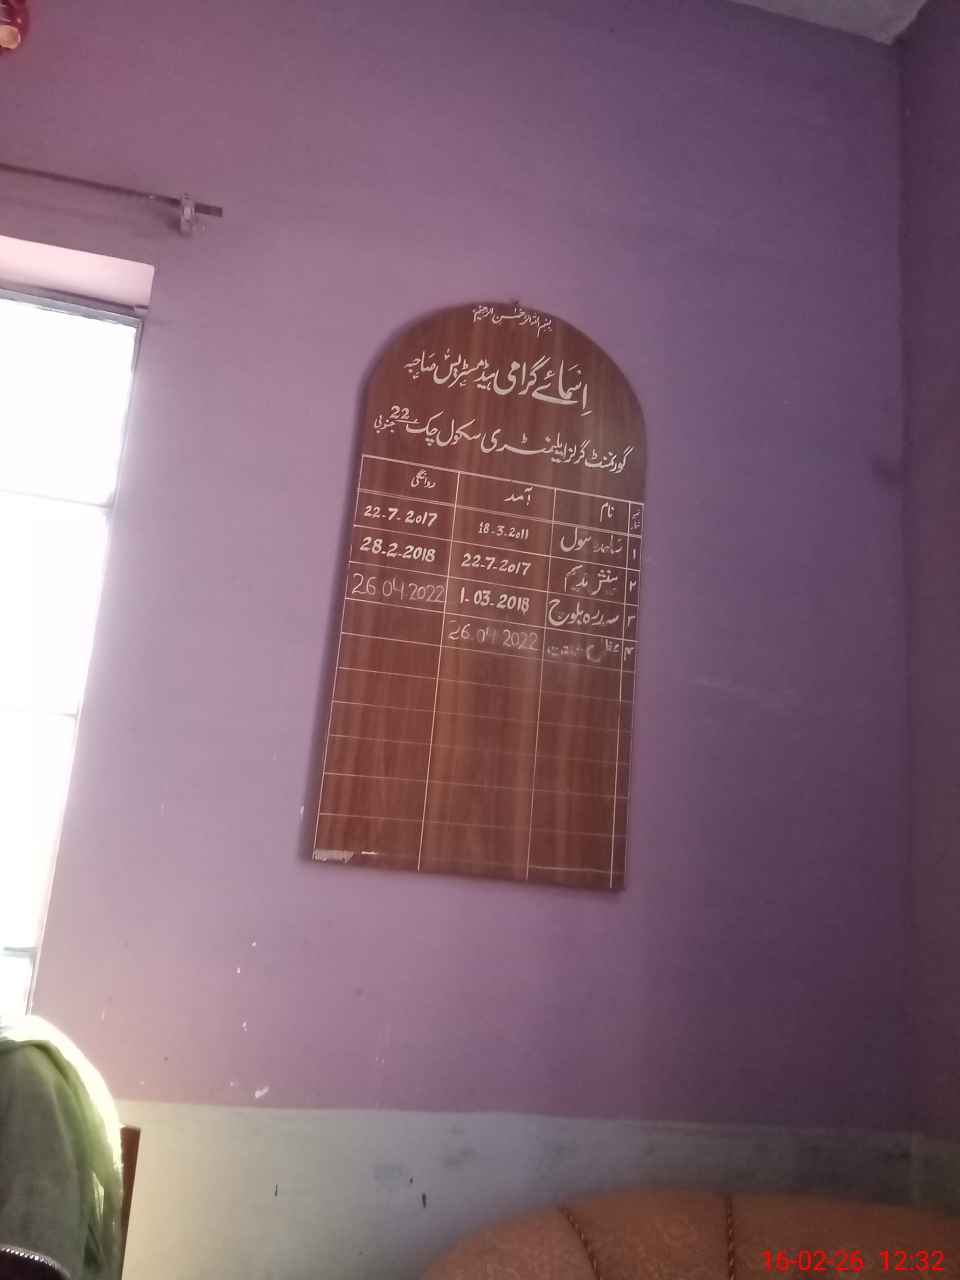 بسم اللہ الرحمٰن الرحیم
اَسمائے گرامی ہیڈ مسٹریس صاحبہ
گورنمنٹ گرلز ایلیمنٹری سکول چک 22 جنوبی
نمبر شمار نام آمد روانگی
۱ ساجدہ رسول 18-3-2011 22-7-2017
۲ 22-7-2017 28-2-2018
۳ سدرہ بلوچ 1-03-2018 26 04 2022
۴ 26 04 2022
16-02-26 12:32